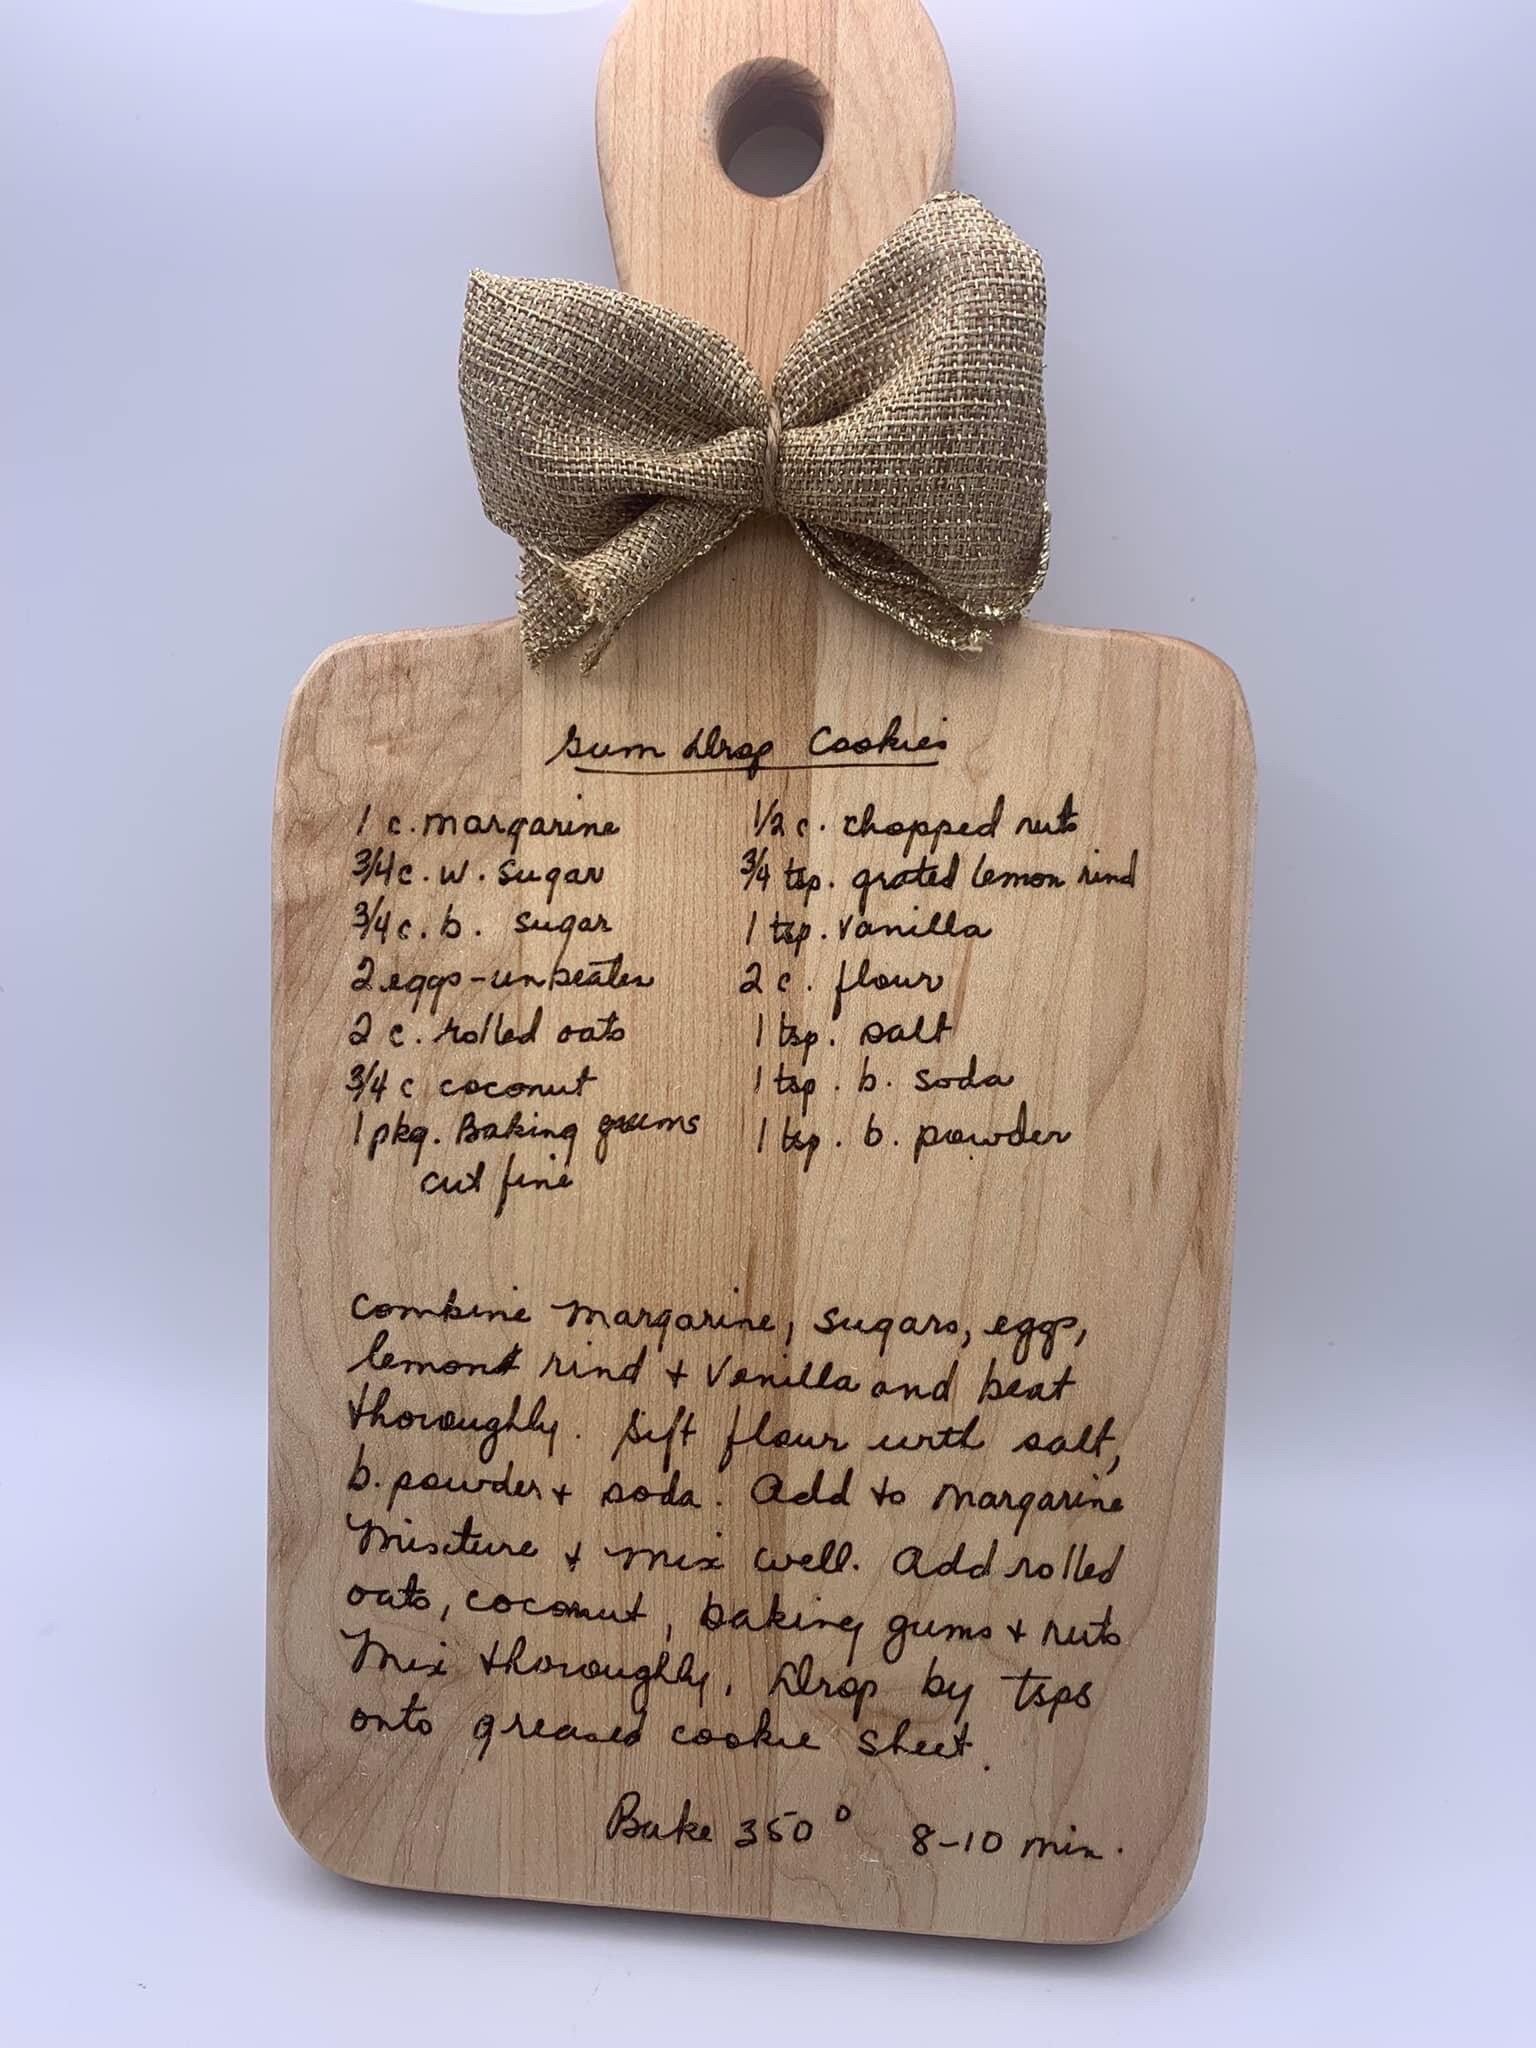 Gum Drop Cookies
1 c. margarine
3/4 c. w. sugar
3/4 c. b. sugar
2 eggs - unbeaten
2 c. rolled oats
3/4 c coconut
1 pkg. Baking gums
cut fine
1/2 c. chopped nuts
3/4 tsp. grated lemon rind
1 tsp. vanilla
2 c. flour
1 tsp. salt
1 tsp. b. soda
1 tsp. b. powder
Combine margarine, sugars, eggs,
lemon rind + Vanilla and beat
thoroughly. Sift flour with salt,
b. powder + soda. Add to margarine
Mixture + mix well. Add rolled
oats, coconut, baking gums + nuts
Mix thoroughly. Drop by tsps
onto greased cookie sheet.
Bake 350° 8-10 min.